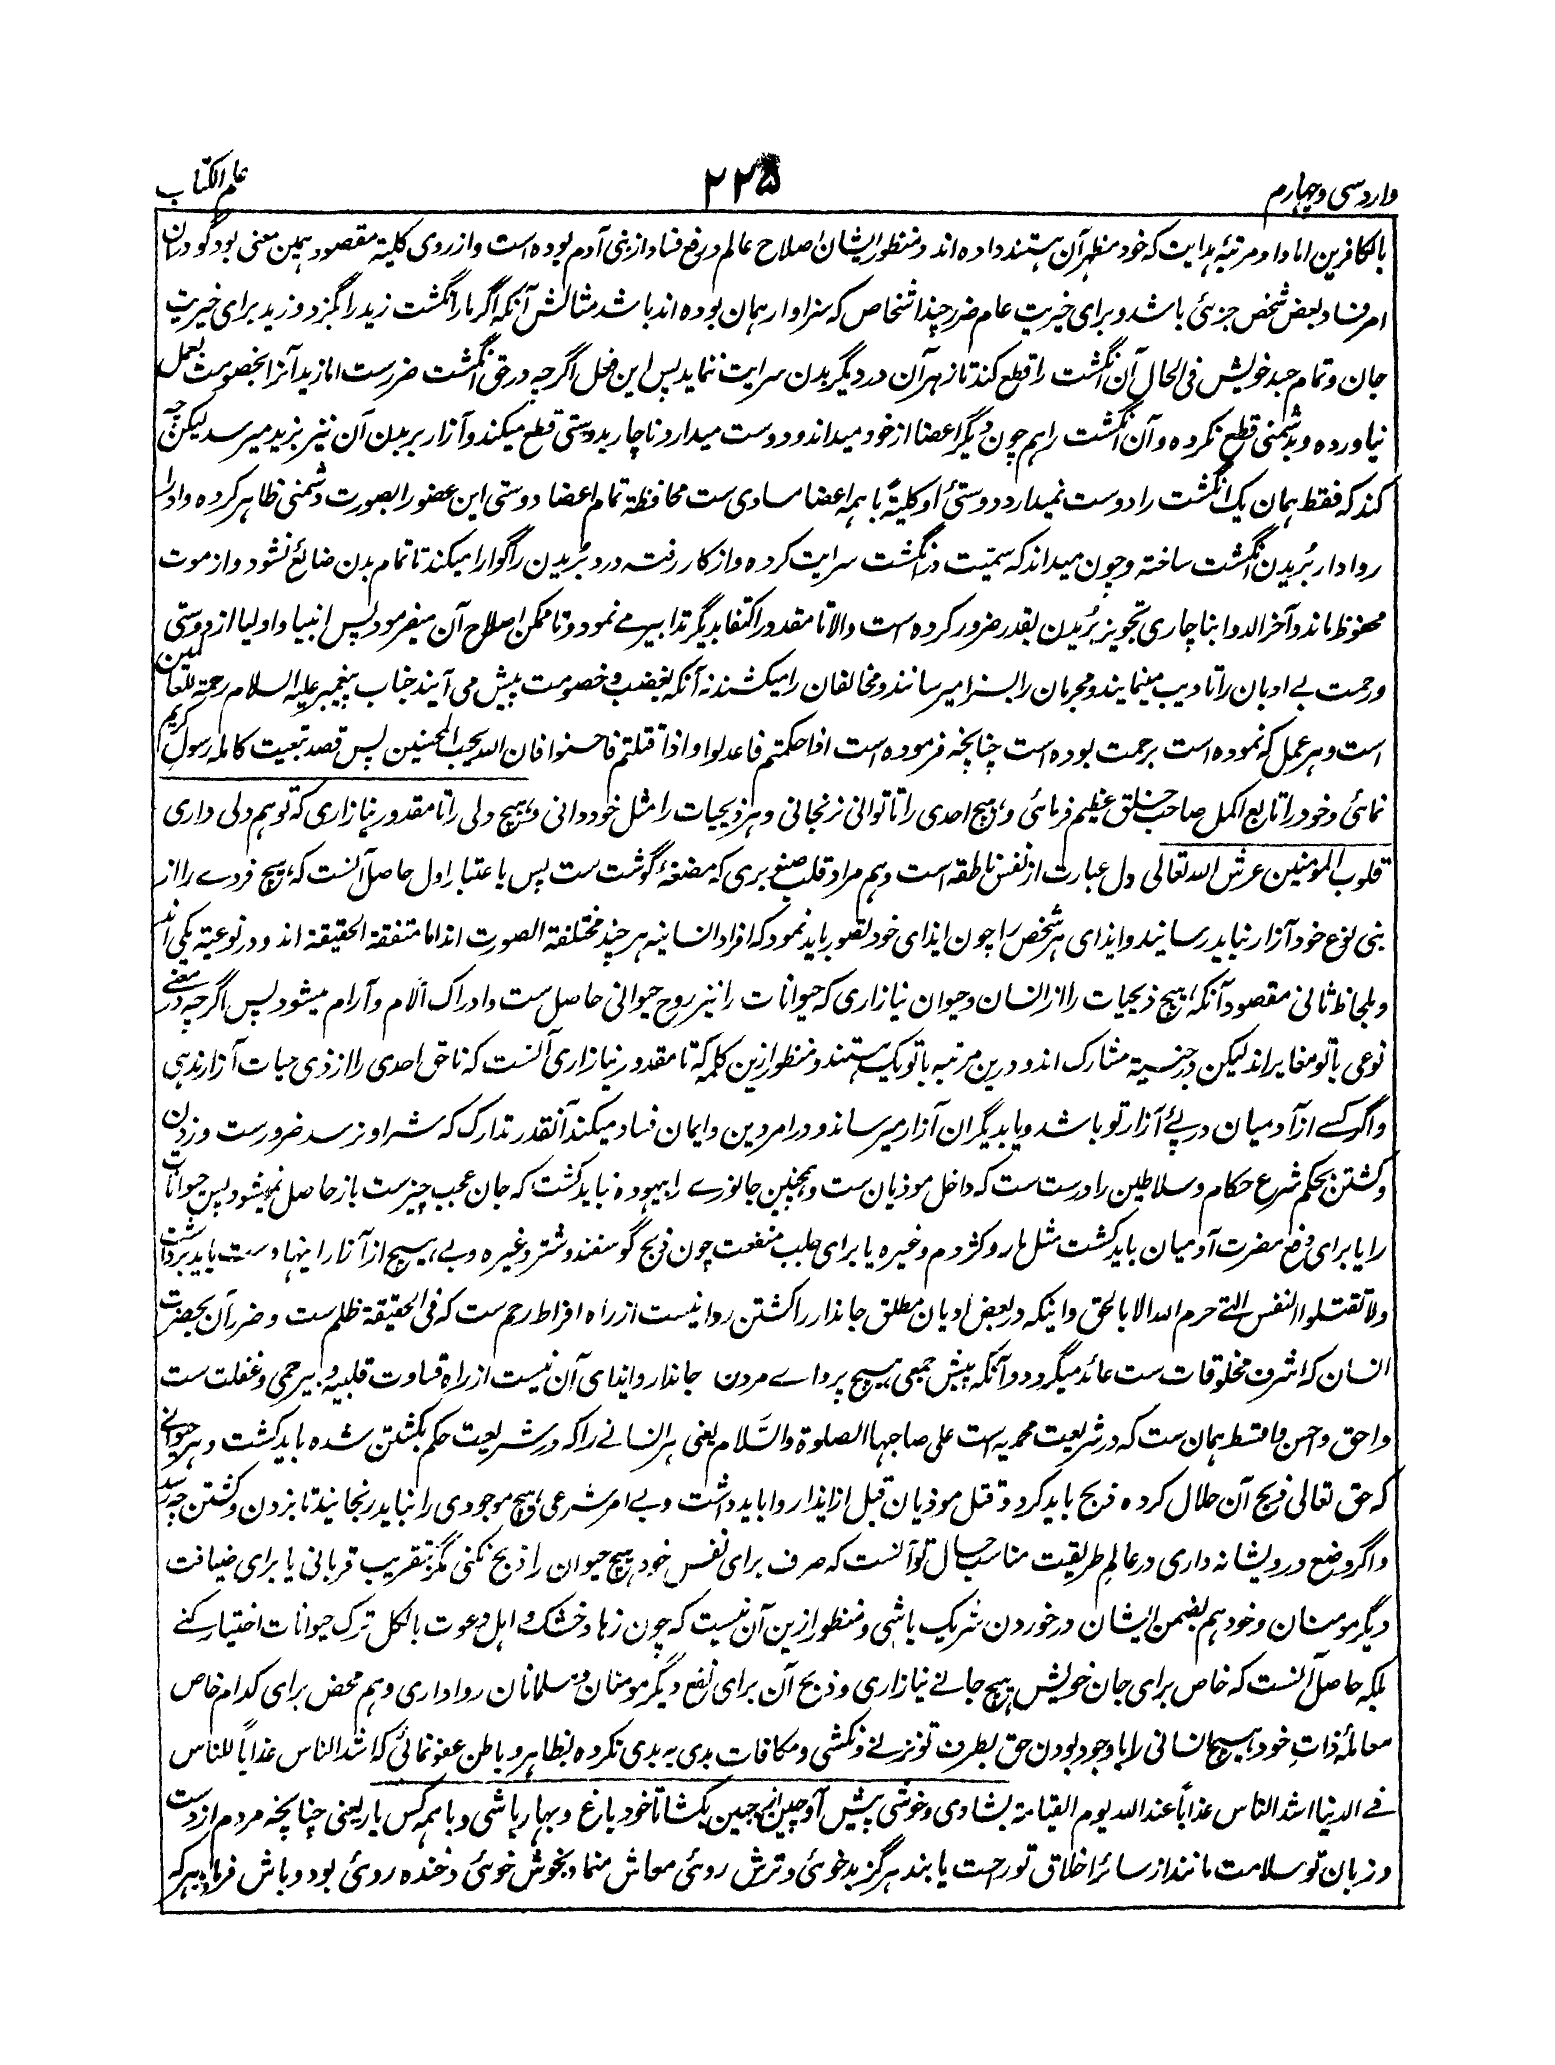 وارد سی و چهارم
۲۲۵
علم الکتاب
بالکافرین اما داد مرتبهٔ هدایت که خود مظهر آن هستند داده‌اند و منظور ایشان اصلاح عالم و رفع فساد از بنی آدم بوده است و از روی کلیة مقصود همین معنی بود گو در آن
امر فساد بعض شخص جزئی باشد و برای خیریت عام ضرر چند اشخاص که سزاوار همان بوده‌اند باشد مثالش آنکه اگر مار انگشت زید را بگزد و زید برای خیریت
جان و تمام جسد خویش فی الحال آن انگشت را قطع کند تا زهر آن در دیگر بدن سرایت ننماید پس این فعل اگرچه در حق انگشت ضررست اما زید آنرا بخصومت بعمل
نیاورده و بدشمنی قطع نکرده و آن انگشت را هم چون دیگر اعضا از خود میداند و دوست میدارد و ناچار بدوستی قطع میکند و آزار بریدن آن نیز بزید میرسد لیکن چه
کند که فقط همان یک انگشت را دوست نمیدارد دوستیٔ او کلیةً با همه اعضا مساوی ست محافظة تمام اعضا دوستی این عضو را بصورت دشمنی ظاهر کرده و او را
روادار بُریدن انگشت ساخته و چون میداند که سمیّت در انگشت سرایت کرده و از کار رفته درد بُریدن را گوارا میکند تا تمام بدن ضائع نشود و از موت
محفوظ ماند و آخر الدوا بناچاری تجویز بُریدن بقدر ضرور کرده است والا تا مقدور اکتفا بدیگر تدابیر مے نمود و تا ممکن اصلاح آن میفرمود پس انبیا و اولیا از دوستی
و رحمت بے ادبان را تادیب مینمایند و مجرمان را بسزا میرسانند و مخالفان را میکشند نه آنکه بغضب و خصومت پیش می آیند جناب پیغمبر علیه السلام رحمة للعالمین
است و هر عمل که نموده است برحمت بوده است چنانچه فرموده است اذا حکمتم فاعدلوا و اذا قتلتم فاحسنوا فان الله یحب المحسنین پس قصد تبعیت کامله رسول کریم
نمائی و خود را تابع اکمل صاحب خلق عظیم فرمائی و هیچ احدی را تا توانی نرنجانی و هر ذیحیات را مثل خود دانی و هیچ دلی را تا مقدور نیازاری که تو هم دلی داری
قلوب المومنین عرش الله تعالی دل عبارت از نفس ناطقه است و هم مراد قلب صنوبری که مضغهٔ گوشت ست پس باعتبار اول حاصل آنست که هیچ فردے را از
بنی نوع خود آزار نباید رسانید و ایذای هر شخص را چون ایذای خود تصور باید نمود که افراد انسانیه هر چند مختلفة الصورت اند اما متفقة الحقیقة اند و در نوعیة یکی اند
و بلحاظ ثانی مقصود آنکه هیچ ذیحیات را از انسان و حیوان نیازاری که حیوانات را نیز روح حیوانی حاصل ست و ادراک آلام و آرام میشود پس اگرچه در معنے
نوعی با تو مغایراند لیکن در جنسیة مشارک اند و درین مرتبه با تو یک هستند و منظور ازین کلمه که تا مقدور نیازاری آنست که ناحق احدی را از ذی حیات آزار ندهی
و اگر کسے از آدمیان در پئے آزار تو باشد و یا بدیگران آزار میرساند و در امر دین و ایمان فساد میکند آنقدر تدارک که شر او نرسد ضرورست و زدن
و کشتن بحکم شرع حکام و سلاطین را درست ست که داخل موذیان ست و همچنین جانورے را بیهوده نباید کشت که جان عجب چیزست باز حاصل نمیشود پس حیوانات
را یا برای دفع مضرت آدمیان باید کشت مثل مار و کژدم و غیره یا برای جلب منفعت چون ذبح گوسفند و شتر و غیره و بے هیچ از آزار اینها دست باید برداشت
ولا تقتلوا النفس التے حرم الله الا بالحق و اینکه در بعض ادیان مطلق جاندار را کشتن روا نیست از راه افراط رحم ست که فی الحقیقة ظلم ست و ضرر آن بحضرت
انسان که اشرف مخلوقات ست عائد میگردد و آنکه پیش جمعی هیچ پرواے مردن جاندار و ایذای آن نیست از راه قساوت قلبیه و بیرحمی و غفلت ست
و احق و احسن و اقسط همان ست که در شریعت محمدیه است علی صاحبها الصلوة والسَّلام یعنی هر انسانے را که در شریعت حکم بکشتن شده باید کشت و هر حیوانے
که حق تعالی ذبح آن حلال کرده ذبح باید کرد و قتل موذیان قبل از ایذا روا باید داشت و بے امر شرعی هیچ موجودی را نباید رنجانید تا بزدن و کشتن چه رسد
و اگر وضع درویشانه داری در عالم طریقت مناسب حال تو آنست که صرف برای نفس خود هیچ حیوان را ذبح نکنی مگر بتقریب قربانی یا برای ضیافت
دیگر مومنان و خود هم بضمن ایشان در خوردن شریک باشی و منظور ازین آن نیست که چون زهاد خشک و اهل دعوت بالکل ترک حیوانات اختیار کنے
بلکه حاصل آنست که خاص برای جان خویش هیچ جانے نیازاری و ذبح آن برای نفع دیگر مومنان و مسلمانان روا داری و هم محض برای کدام خاص
معاملهٔ ذات خود هیچ انسانی را با وجود بودن حق بطرف تو نزنے و نکشی و مکافات بدی به بدی نکرده بظاهر و باطن عفو نمائی که اشد الناس عذاباً للناس
فے الدنیا اشد الناس عذاباً عند الله یوم القیامة بشادی و خوشی پیش آ و چین از جبین بکشا تا خود باغ و بهار باشی و با همه کس یار یعنی چنانچه مردم از دست
و زبان تو سلامت مانند از سائر اخلاق تو راحت یابند هرگز بدخوئی و ترش روئی معاش منما و بخوش خوئی و خنده روئی بود و باش فرما و بهر که